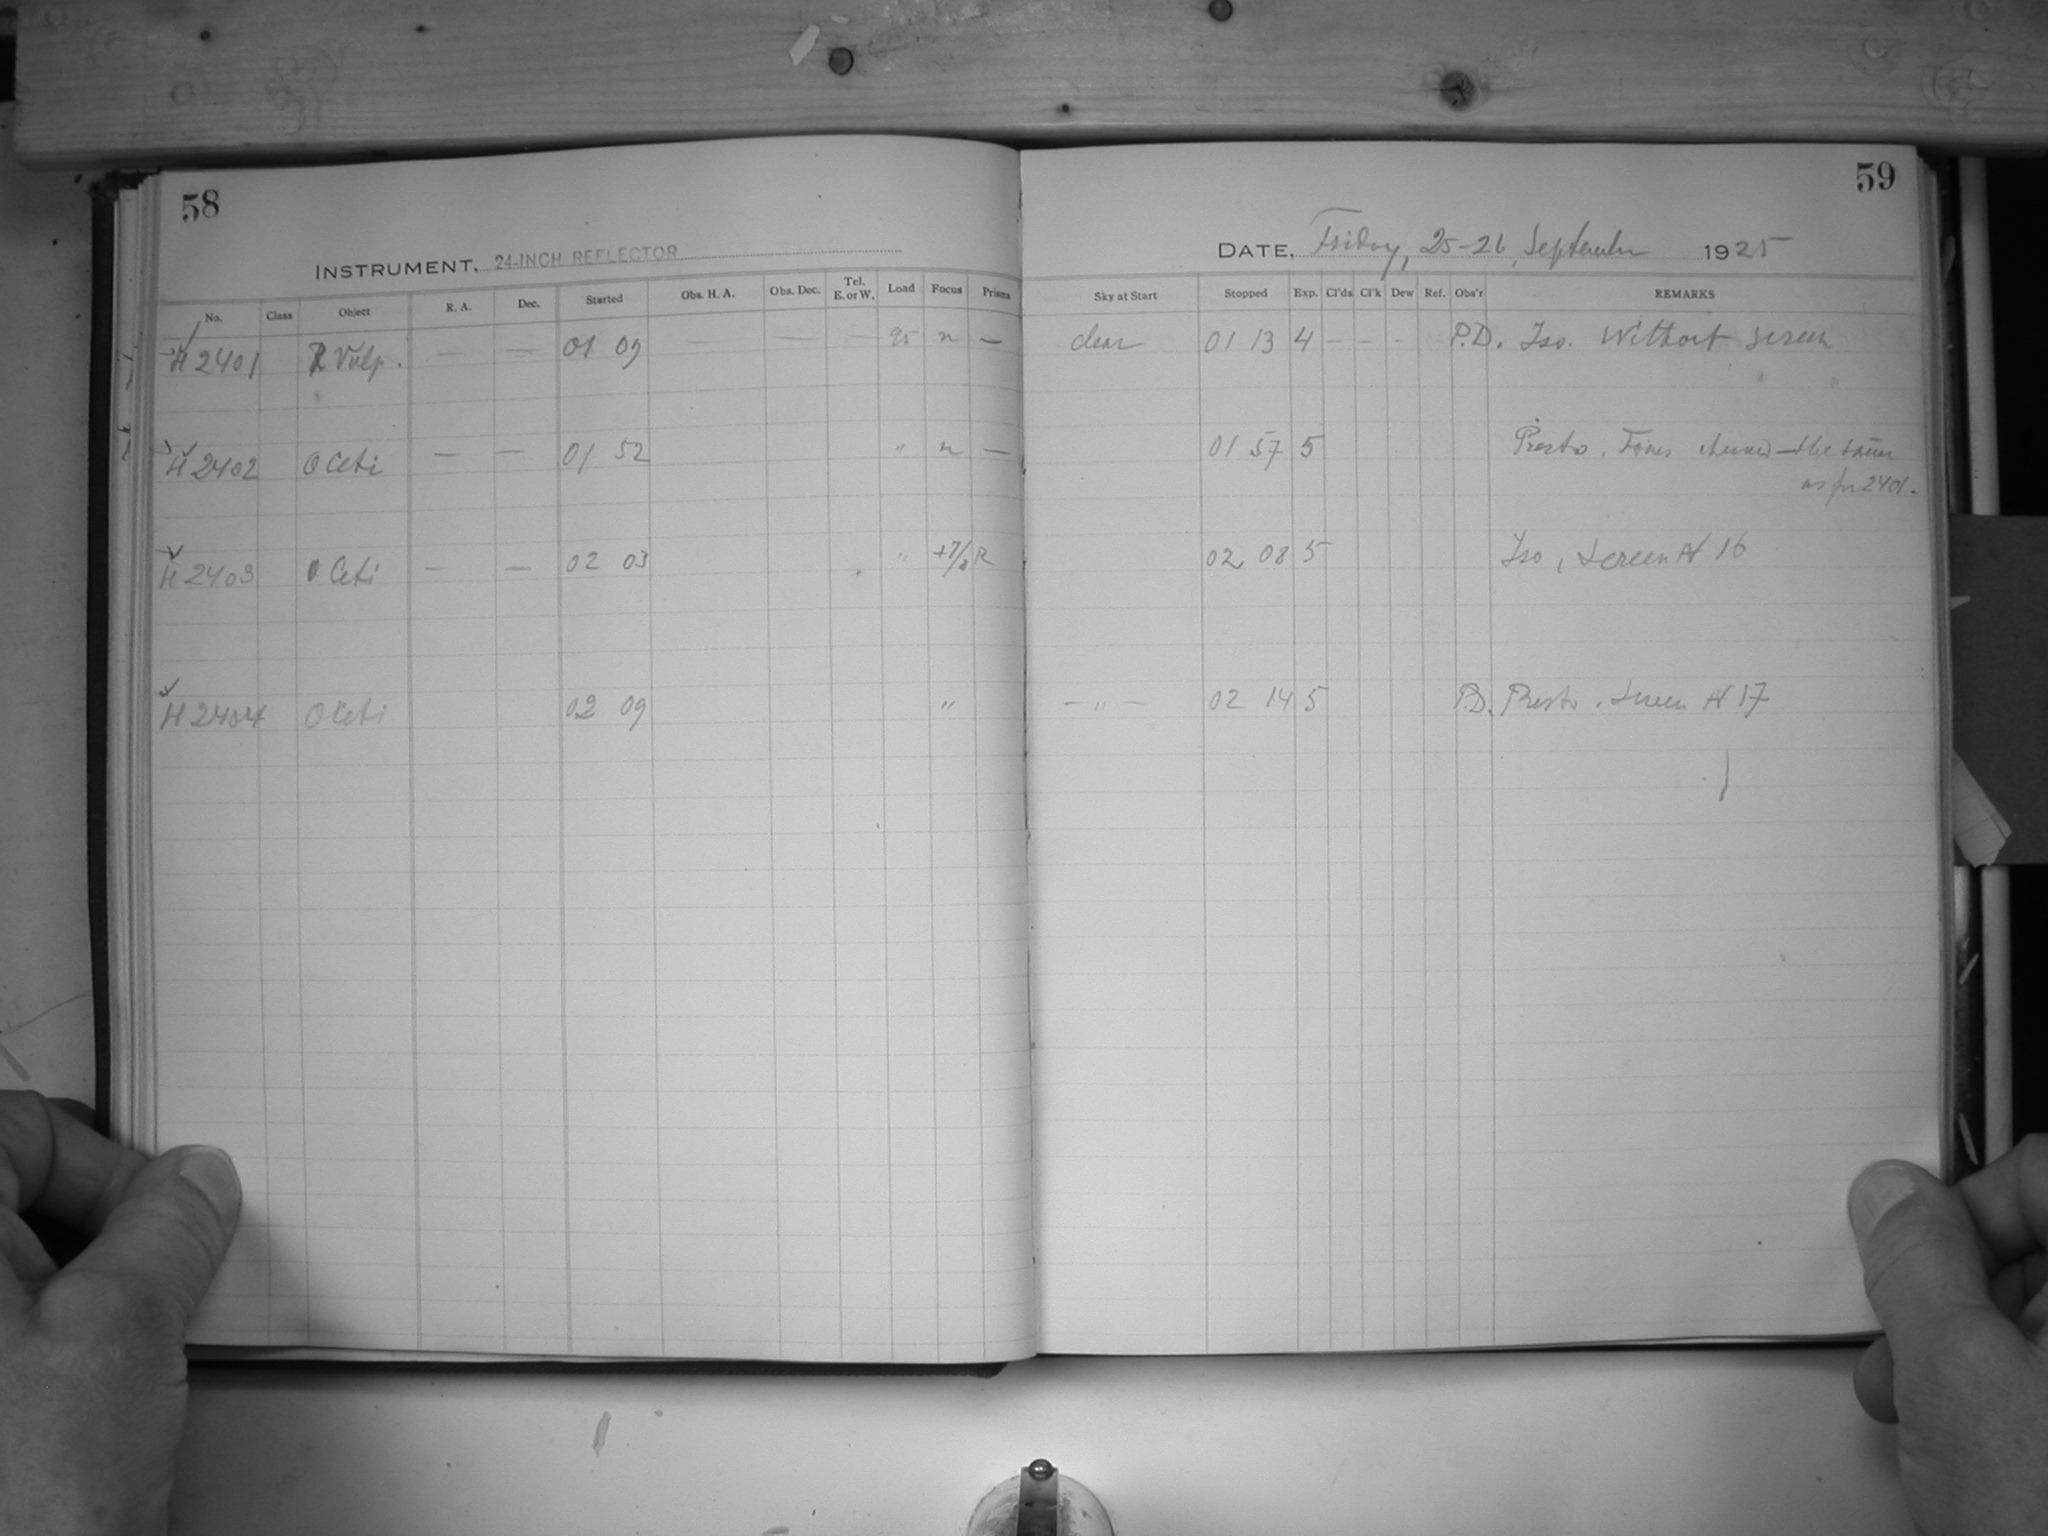 58
INSTRUMENT, 24-INCH REFLECTOR
No. Class Object R. A. Dec. Started Obs. H. A. Obs. Dec. Tel. E. or W. Load Focus Prisms
H 2401 R Vulp. — — 01 09 — — — 95 n —
H 2402 O Ceti — — 01 52 " n —
H 2403 O Ceti — — 02 03 " +7/8 R
H 2404 O Ceti 02 09 "
59
DATE, Friday, 25-26, September 1925
Sky at Start Stopped Exp. Cl'ds Cl'k Dew Ref. Obs'r REMARKS
clear 01 13 4 - - - P.D. Iso. Without screen
01 57 5 Presto. the same
as for 2401.
02 08 5 Iso, Screen N 16
— " — 02 14 5 P.D. Presto. Screen N 17